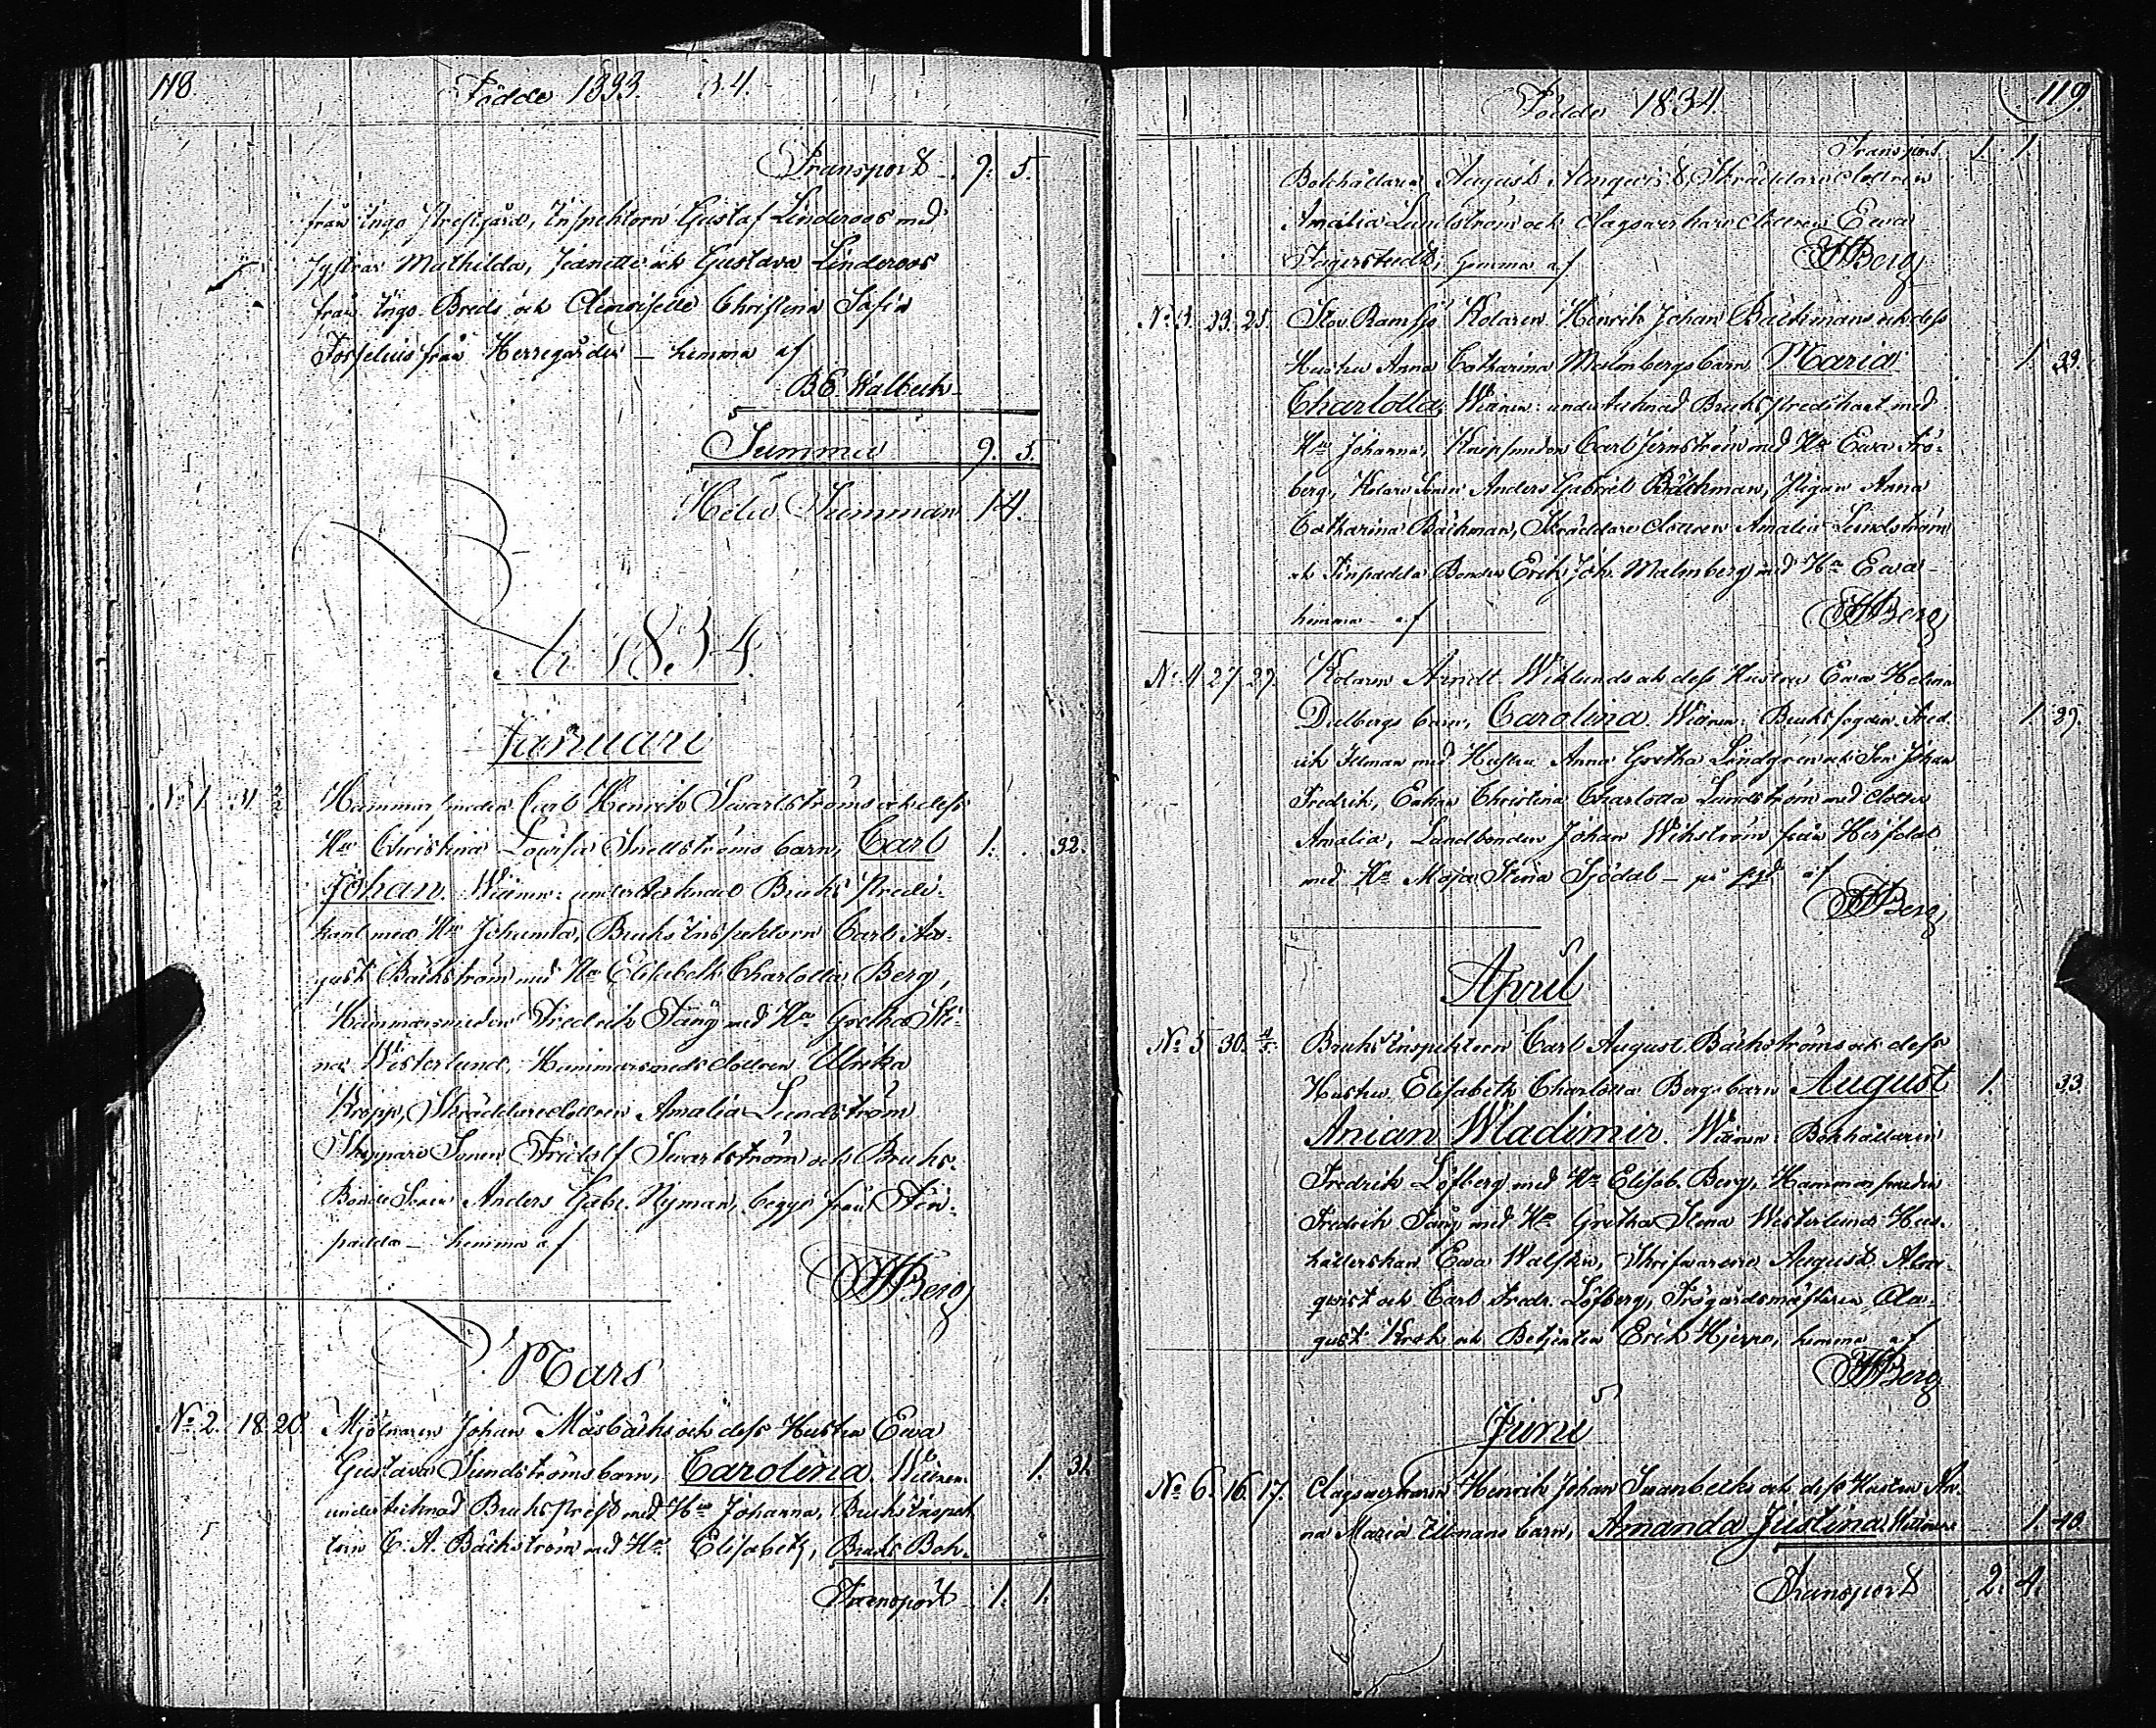 118. Födde 1833. 34.
Transport 9. 5.
från Ingo Prestgård, Inspektorn Gustaf Linderoos med
Systrar Mathilda, Jeanette och Gustava Linderoos
från Ingo Breds och Demoiselle Christina Sofia
från Herregården – hemma af
B E Walbeck
Summa 9. 5.
Hela Summan 14.
År 1834.
Januari
No 1. 31. 2/2 Hammarsmeden Carl Henrik Swartströms och dess
Hu Christina Lovisa Snellströms barn, Carl 1. 32.
Johan. Wittnen: undertecknad Bruks Predi-
kant med Hu Johanna, Bruks Inspektorn Carl Au-
gust Bäckström med Hu Elisabeth Charlotta Berg,
Hammarsmeden Fredrik Täng med Hu Gretha Sti-
na Westerlund, Hammarsmeds dottren Ulrika
Kropp, Skräddaredottren Amalia Lundström
Skeppare Sonen Fridolf Swartström och Bruks-
Bonde Sonen Anders Gabr. Nyman, begge från Fin-
padda – hemma af
Berg
Mars
No 2. 18. 20. Mjölnaren Johan Måsbäcks och dess Hustru Ewa
Gustava Sundströms barn, Carolina. Wittnen: 1. 32
undertecknad Bruksprest med Hu Johanna, Bruks Inspek
torn C. A. Bäckström med Hu Elisabeth, Bruks Bok-
Transport 1. 1.
Födde 1834. 119
Transport 1. 1
Bokhållaren August Almqvist, Skräddare dottren
Amalia Lundström och dagsverkare dottren Ewa
Fagerstedt, hemma af Berg
No 3. 23. 25. Kolaren Henrik Johan Bäckmans och dess
Hustru Anna Catharina Malmbergs barn Maria 1. 33.
Charlotta, Wittnen: undertecknad Bruks Predikant med
Hu Johanna, Knipsmeden Carl Jernström med Hu Ewa Frö-
berg, Kolare Sonen Anders Gabriel Bäckman, Pigan Anna
Catharina Bäckman, Skräddare dottren Amalia Lundström
och Finpadda Bonden Erik Joh. Malmberg med Hu Ewa –
hemma – af Berg
No 4. 27. 29. Kolaren Arndt Wiklunds och dess Hustru Ewa Helena
Dulbergs barn, Carolina. Wittnen: Bruksfogden Fred- 1. 39.
rik Illman med Hustru Anna Gretha Lindgren och Son Johan
Fredrik, Enkan Christina Charlotta Lundström med dotter
Amalia, Landbonden Johan Wikström från
med Hu Maja Stina Sjödal – på af
Berg
April
No 5. 30. 4/5. Bruks Inspektorn Carl August Bäckströms och dess
Hustru Elisabeth Charlotta Bergs barn August 1. 33.
Anian Wladimir. Wittnen: Bokhållaren
Fredrik Löfberg med Hu Elisab. Berg, Hammarsmeden
Fredrik Täng med Hu Gretha Stina Westerlund Hus-
hållerskan Ewa Walstén, Skrifvarene August Alm-
qvist och Carl Fredr. Löfberg, Trägårdsmästaren Au-
gust Krok och Betjenten Erik Hjerpe, hemma af
Berg
Juni
No 6. 16. 17. Dagsverkaren Henrik Johan Swanbecks och dess Hustru An-
na Maria Illmans barn, Amanda Justina. Wittnen: 1. 40.
Transport 2. 4.